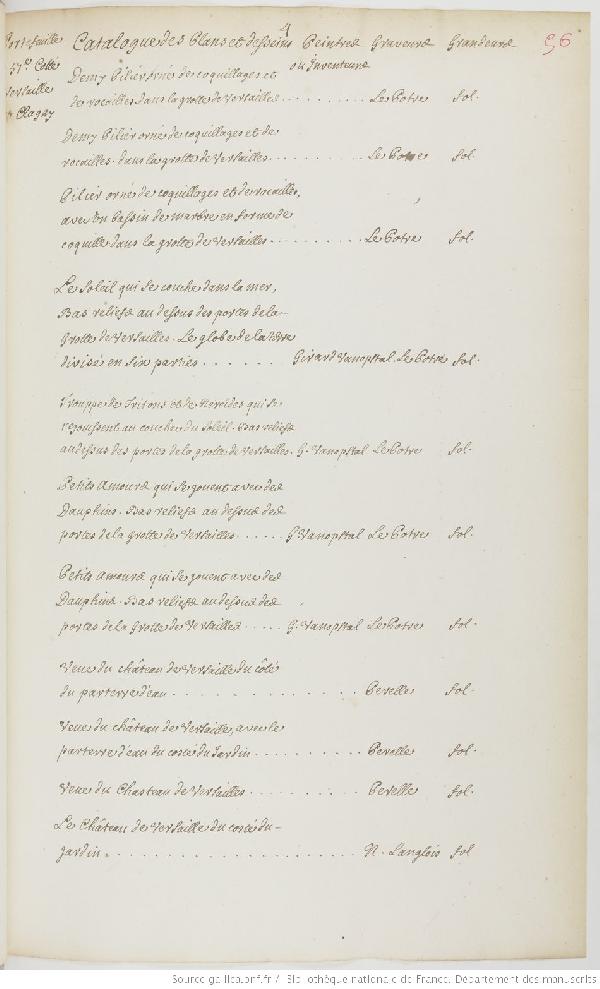 4
Portefeuille Catalogue des Plans et desseins Peintres Graveurs Grandeurs 56
57e. Cotté ou Inventeurs
Versaille
& Clagny
Demy Pilier orné de coquillages et
de rocailles dans la grotte de Versailles . . . . . . . . . . Le Potre fol.
Demy Pilier orné de coquillages et de
rocailles. dans la grotte de Versailles . . . . . . . . . . Le Potre fol.
Pilier orné de coquillages et de rocailles,
avec Un bassin de marbre en forme de
coquille dans la grotte de Versailles . . . . . . . . . . Le Potre fol.
Le Soleil qui se couche dans la mer,
Bas reliefs au dessus des portes de la
Grotte de Versailles. Le globe de la terre
divisé en six parties . . . . . . . Girard Vanopstal. Le Potre fol.
Trouppe de Tritons et de Nereides qui se
rejouissent au coucher du Soleil. Bas reliefs
au dessus des portes de la grotte de Versailles. G. Vanopstal Le Potre fol.
Petits Amours qui se jouent avec des
Dauphins. Bas reliefs au dessus des
portes de la grotte de Versailles . . . . . G. Vanopstal Le Potre fol.
Petits Amours qui se jouent avec des
Dauphins. Bas reliefs au dessus des
portes de la Grotte de Versailles . . . . . G. Vanopstal Le Potre fol.
Veue du château de Versaille du côté
du parterre d'eau . . . . . . . . . . . . . . . Perelle fol.
Veue du château de Versailles, avec le
parterre d'eau du costé du Jardin . . . . . . . . . . Perelle fol.
Veue du Chasteau de Versailles . . . . . . . . . . Perelle fol.
Le Château de Versaille du costé du
Jardin . . . . . . . . . . . . . . . . . . . . N. Langlois fol
Source gallica.bnf.fr / Bibliothèque nationale de France. Département des manuscrits